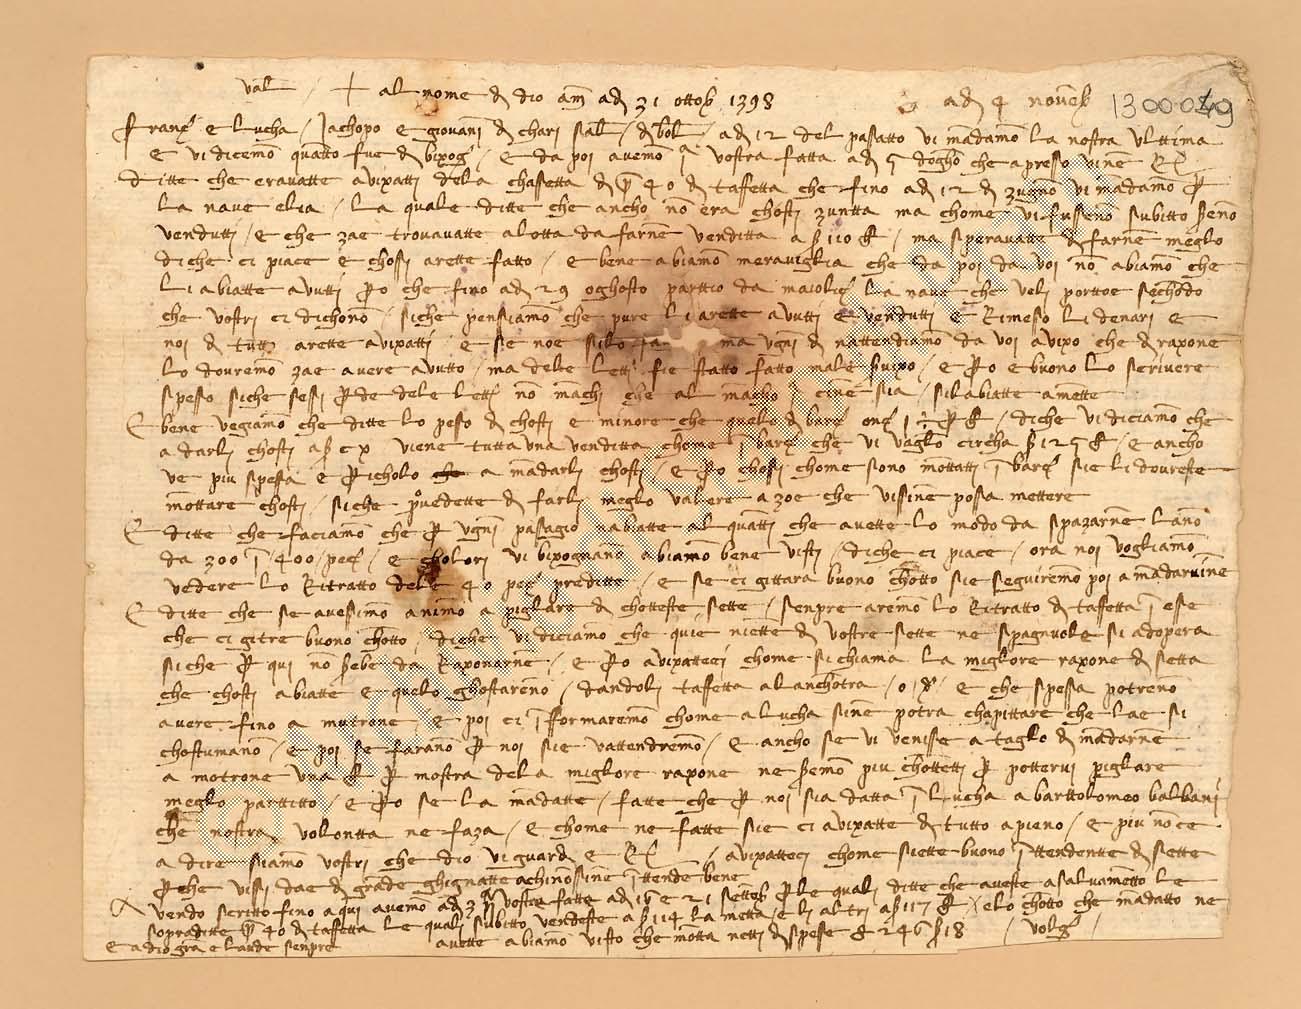 val / + al nome di dio am̄ adì 31 ottob 1398 adì 4 noveb 1300049
Franc e Lucha / Jachopo e giovani di chari sal / di bol / adì 12 del pasatto vi mādamo la nostra ulttima
e vi dicemo quātto fue di bixog / e da poi avemo j vostra fatta adì 5 dogho che apresso
ditte che eravatte avixatti dela chassetta di 40 di taffetta che fino adì 12 di zugno vi mādamo p
la nave elia / la quale ditte che ancho nō era chosti zuntta ma chome vi fusseno subitto seno
vendutti / e che zae trovavatte alotta da farne venditta a s 110 / ma speravatte di farne meglo
di che ci piace e chossi arette fatto / e bene abiamo meraviglia che da poi da voi nō abiamo che
li abiatte avutti po che fino adì 29 oghosto parttio da maiolic la nave che veli porttoe sechōdo
che vostri ci dichono / siche pensiamo che pure li arette avutti e vendutti e rimeso li denari e
noi di tutto arette avixatti / e sie noe silo ma ugni di nattendiamo da voi avixo che di raxone
lo douremo zae avere avutto / ma dele lett fie statto fatto male / e po e buono lo scrivere
spesso siche sesi pde dele lett nō māchi che al mācho cine sia / silabiatte amette
E bene vegiamo che ditte lo peso di chosti e minore che quelo di barc / di che vi diciamo che
a darli chosti a s cx viene tutta una venditta chome j barc che vi vaglo circha s 125 / e ancho
ve piu spessa e pricholo che a mādarli chosti / e po chossi chome sono mōttatti j barc sie li doureste
mōttare chosti / siche pvedette di farli meglo valere a zoe che vissine possa mettere
E ditte che faciamo che p ugni pasagio nabiatte alquātti che avette lo modo da spazarne lano
da 300 j 400 pec / e cholori vi bixognano abiamo bene visti / di che ci piace / ora noi vogliamo
vedere lo ritratto dele 40 pec preditte / e se ci gittara buono chōtto sie seguiremo poi a mādarvine
E ditte che se avessimo animo a piglare di chotteste sette / senpre aremo lo ritratto di taffetta j esse
che ci gitre buono chōtto / di che vi diciamo che quie niette di vostre sette ne spagnuole si adopera
siche p qui nō sebe da raxonarne / e po avixatteci chome si chiama la migliore raxone di setta
che chosti abiatte e quelo ghostareno / dandoli taffetta alanchōtra / o d / e che spessa potreno
avere fino a mutrone / e poi ci jfformaremo chome a Lucha sine potra chapittare che lae si
chostumano / e poi se farano p noi sie vattendremo / E ancho se vi venisse a taglo di mādarne
a motrone una p mostra dela migliore raxone ne semo piu chōttetti p potterui piglare
meglo parttitto / e po se la mādatte / fatte che p noi sia datta j Lucha a barttolomeo balbani
che nostra volontta ne faza / E chome ne fatte sie ci avixatte di tutto apieno / E piu no ce
a dire siamo vostri che dio vi guardi e / avixatteci chome siette buono jttendentte di sette
pche vissi dae di grāde ghignatte achinossine jttende bene
vendo scritto fino a qui avemo adì 3 vostre fatte adì 15 e 21 settēb p le quali ditte che aveste a salvamētto le
sopraditte 40 di taffetta le quali subitto vendeste a s 114 la metta e li altri a s 117 / e lo chōtto che mādatto ne
avette abiamo visto che mōtta netti di spesse 246 s 18 / volg /
E a dio gra e laude senpre